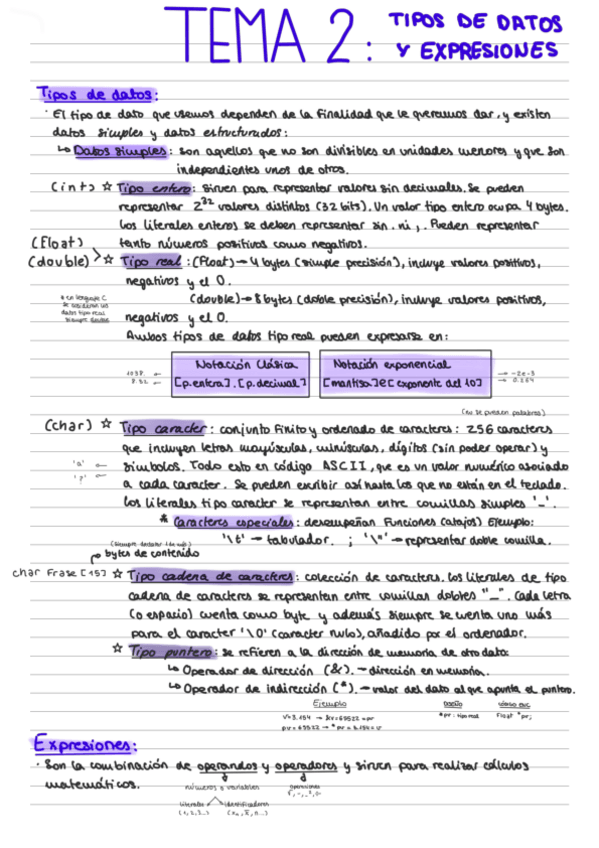 TEMA 2: TIPOS DE DATOS
Y EXPRESIONES
Tipos de datos:
· El tipo de dato que usemos dependen de la finalidad que le queramos dar, y existen
datos simples y datos estructurados:
↳ Datos simples: son aquellos que no son divisibles en unidades menores y que son
independientes unos de otros.
(int) ☆ Tipo entero: sirven para representar valores sin decimales. Se pueden
representar 2³² valores distintos (32 bits). Un valor tipo entero ocupa 4 bytes.
Los literales enteros se deben representar sin . ni , . Pueden representar
tanto números positivos como negativos.
(Float)
(double) > ☆ Tipo real: (Float) → 4 bytes (simple precisión), incluye valores positivos,
negativos y el 0.
(double) → 8 bytes (doble precisión), incluye valores positivos,
negativos y el 0.
* en lenguaje C
se consideran los
datos tipo real
siempre double
Ambos tipos de datos tipo real pueden expresarse en:
Notación Clásica
[p.entera].[p.decimal]
Notación exponencial
[mantisa]e[exponente del 10]
→ -2e-3
→ 0.254
(no se pueden palabras)
(char) ☆ Tipo caracter: conjunto finito y ordenado de caracteres: 256 caracteres
que incluyen letras mayúsculas, minúsculas, dígitos (sin poder operar) y
símbolos. Todo esto en código ASCII, que es un valor numérico asociado
'a' ←
'?' ←
a cada caracter. Se pueden escribir así hasta los que no están en el teclado.
Los literales tipo caracter se representan entre comillas simples '_'.
* Caracteres especiales: desempeñan Funciones (atajos) Ejemplo:
'\t' → tabulador. ; '\"' → representar doble comilla.
bytes de contenido
char Frase [15] ☆ Tipo cadena de caracteres: colección de caracteres. Los literales de tipo
cadena de caracteres se representan entre comillas dobles "_". Cada letra
(o espacio) cuenta como byte y además siempre se cuenta uno más
para el caracter '\0' (caracter nulo), añadido por el ordenador.
☆ Tipo puntero: se refieren a la dirección de memoria de otro dato:
↳ Operador de dirección (&). → dirección en memoria.
↳ Operador de indirección (*). → valor del dato al que apunta el puntero.
Ejemplo
*pr: tipo real
Float *pr;
Expresiones:
· Son la combinación de operandos y operadores y sirven para realizar cálculos
matemáticos.
números o variables
operaciones
literales
identificadores